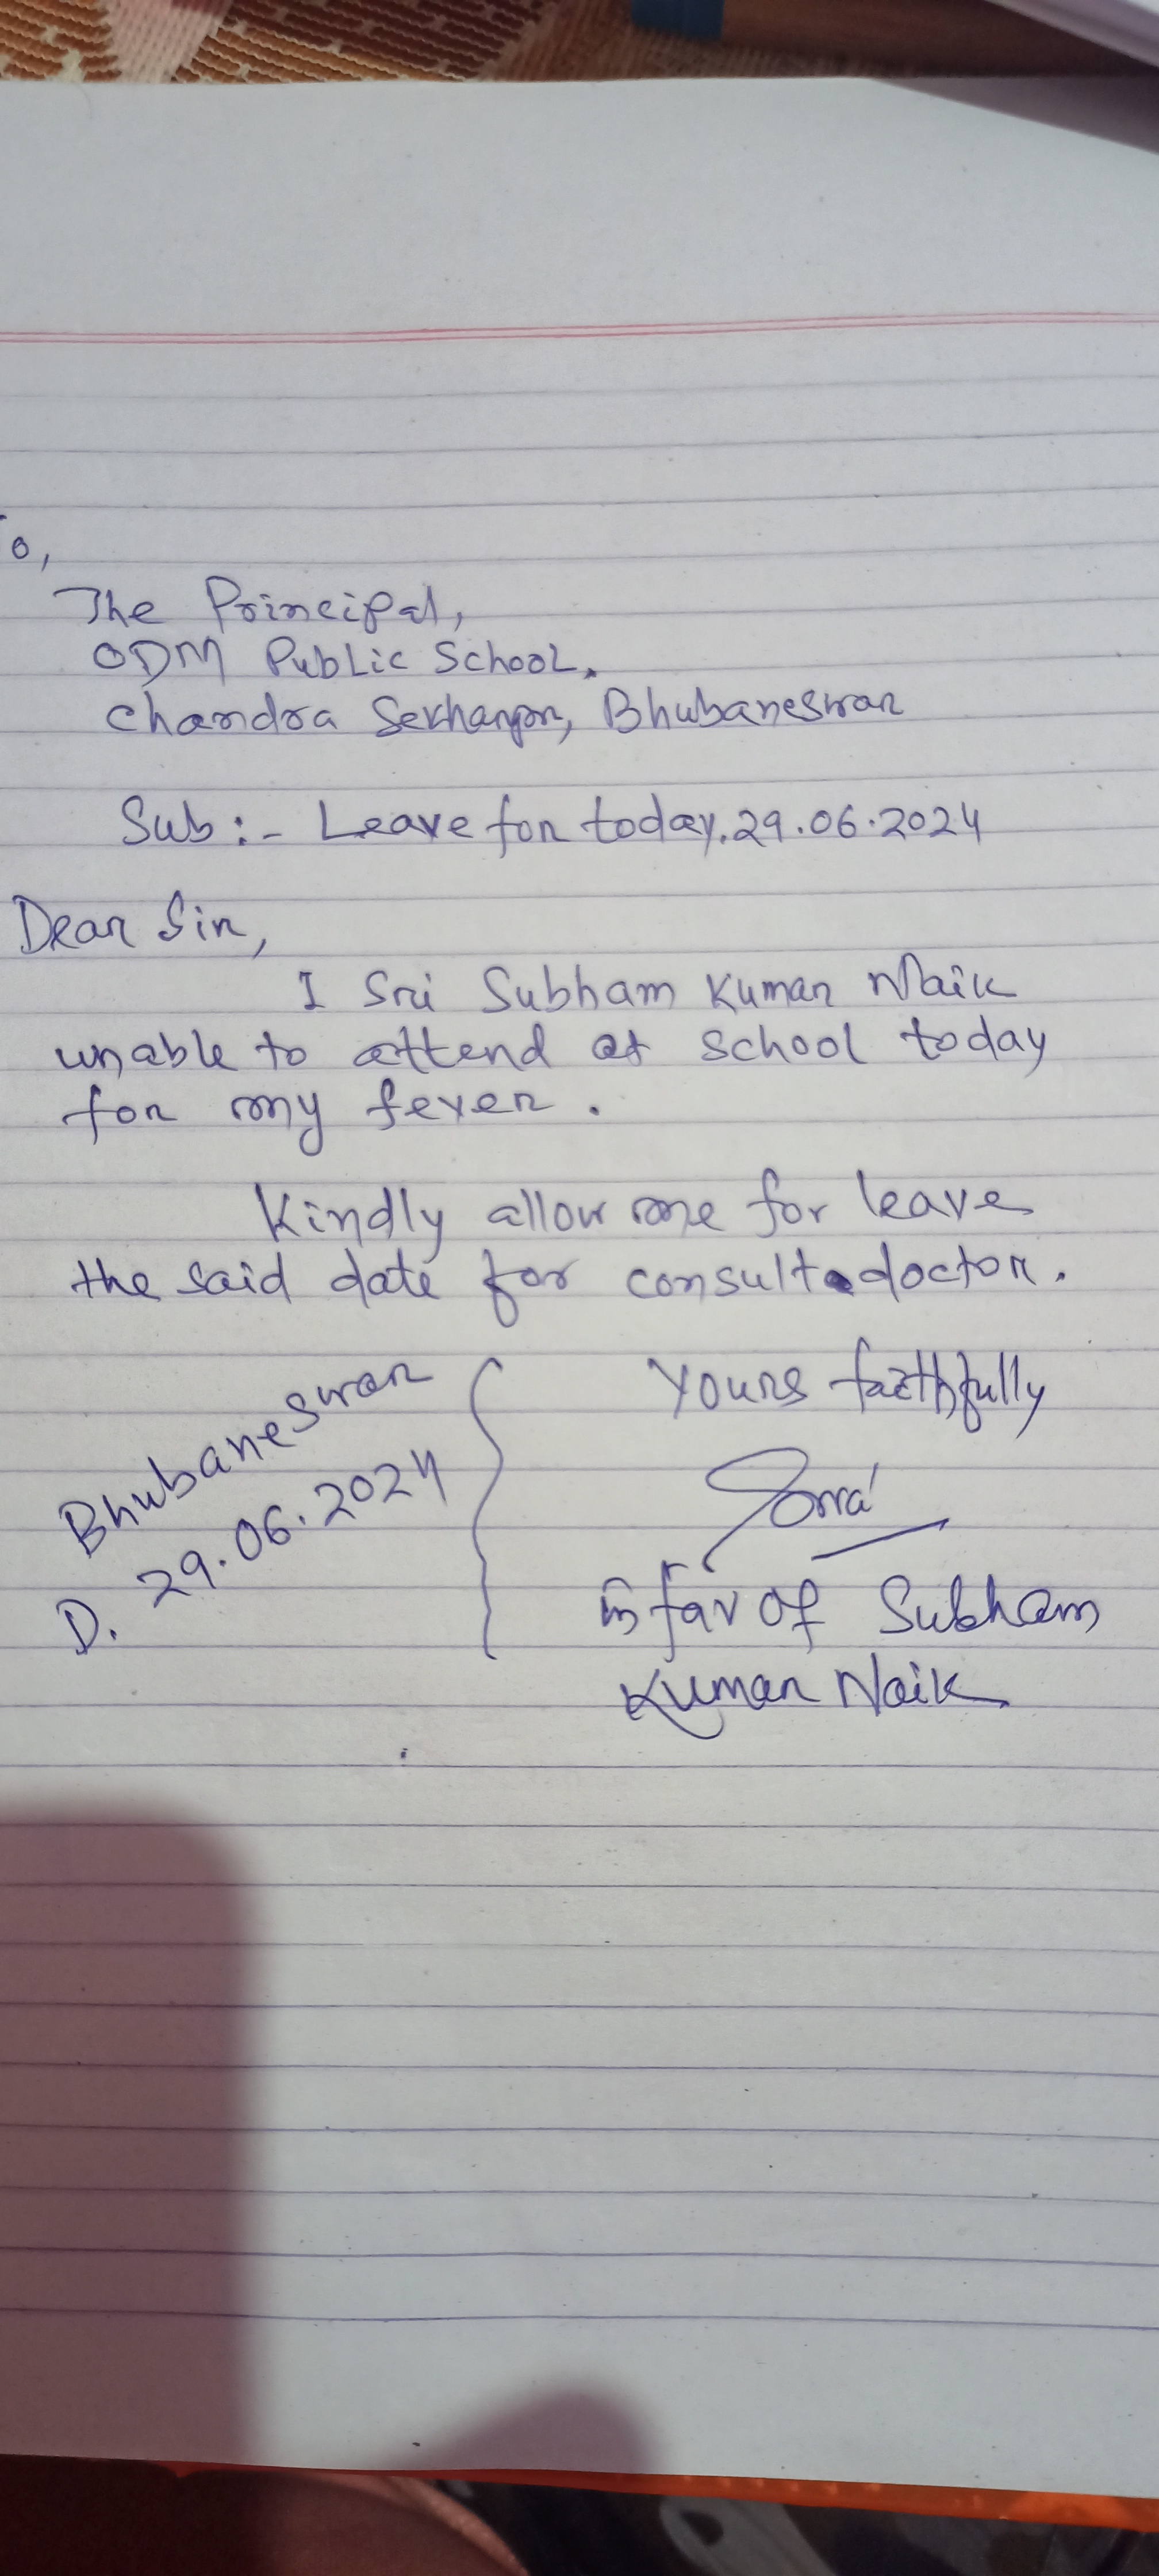 To,
The Principal,
ODM Public School,
Chandra Sekharpur, Bhubaneswar
Sub :- Leave for today. 29.06.2024
Dear Sir,
I Sri Subham Kumar Naik
unable to attend at school today
for my fever.
Kindly allow me for leave
the said date for consult doctor.
Bhubaneswar
D. 29.06.2024
Yours faithfully
in fav of Subham
Kumar Naik